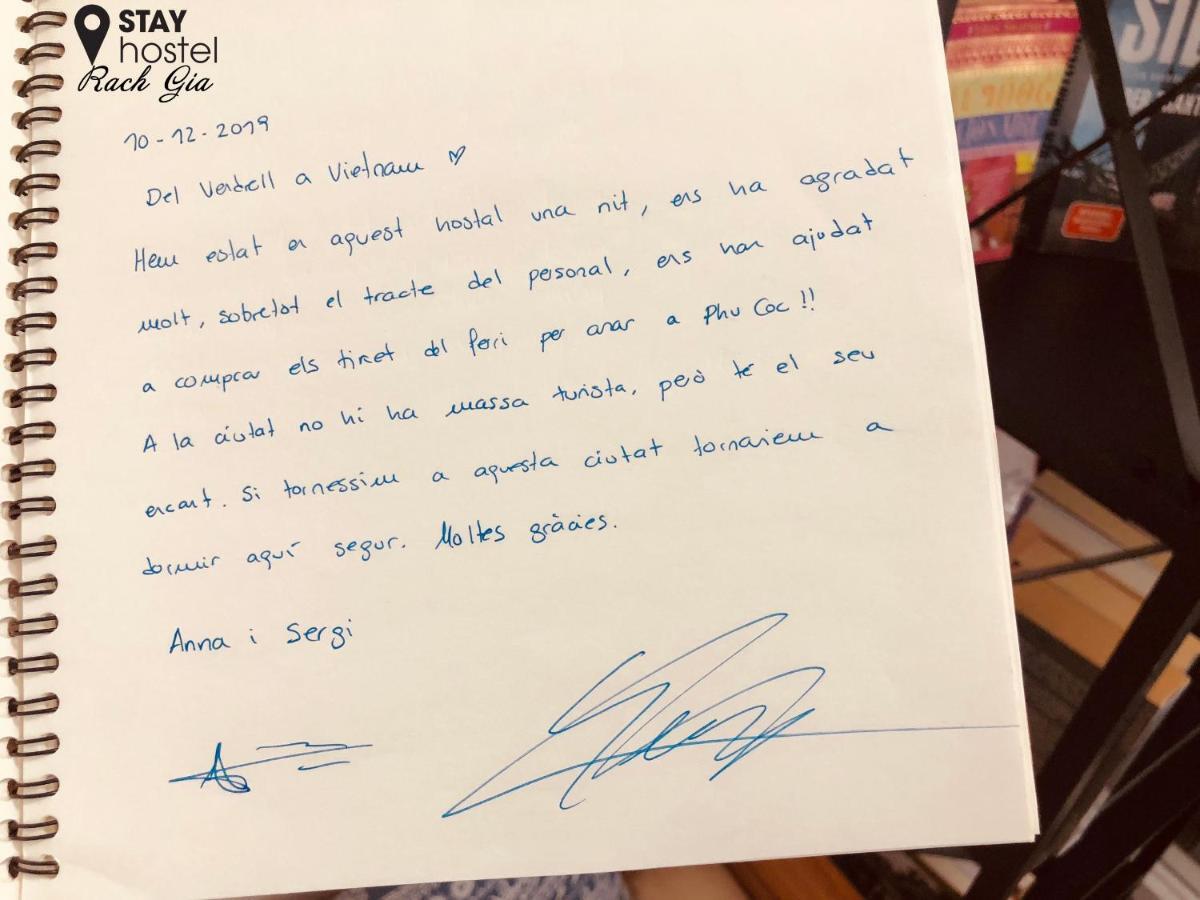 STAY
hostel
Rach Gia
10-12-2019
Del Verdell a Vietnam
Hem estat en aquest hostal una nit, ens ha agradat
molt, sobretot el tracte del personal, ens han ajudat
a comprar els tiket del ferri per anar a Phu Coc!!
A la ciutat no hi ha massa turista, però té el seu
encant. Si tornessim a aquesta ciutat tornariem a
dormir aquí segur. Moltes gràcies.
Anna i Sergi